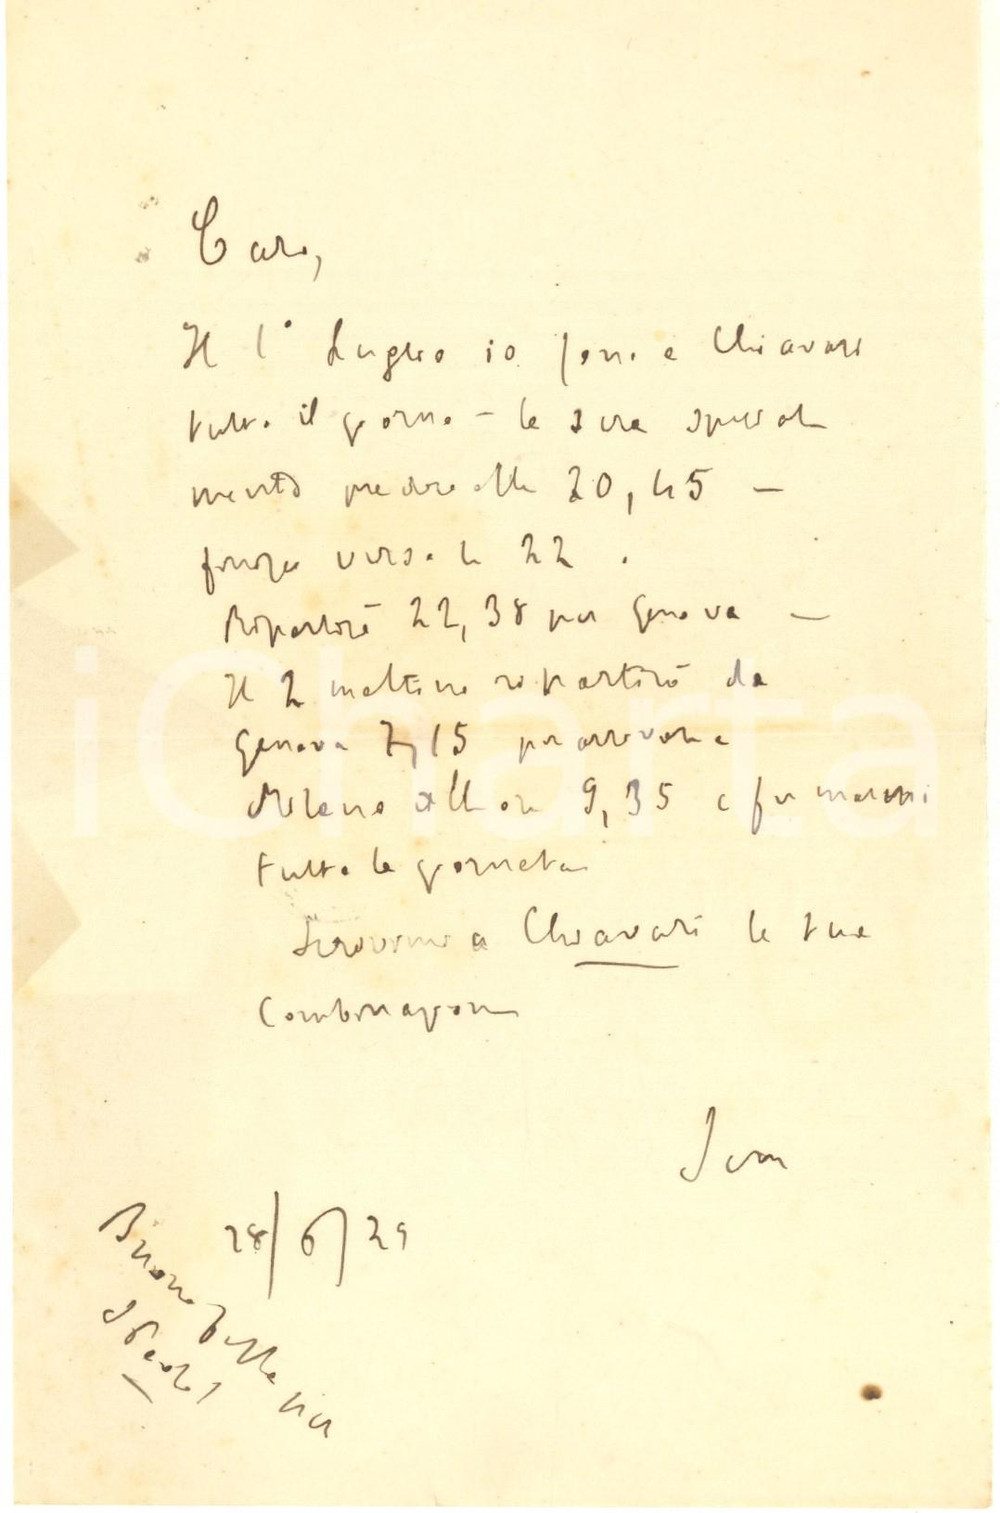 Caro,
Il 1° Luglio io sono a Chiavari
tutto il giorno - la sera
alle 20,45 —
verso le 22.
Ripartirò 22,38 per Genova —
Il 2 mattino ripartirò da
Genova 7,15 per arrivare a
Milano alle ore 9,35 e fermarmi
tutta la giornata
Scrivimi a Chiavari le tue
combinazioni
28/6/29
Buona
iCharta